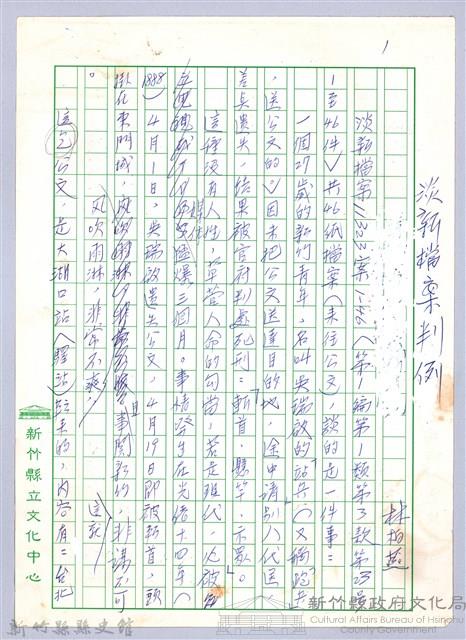 1
淡新檔案判例
林柏燕
淡新檔案11323案1-46(第1編第1類第3款第23案
1至46件)共46紙檔案(來往公文),談的是一件事:
一個27歲的新竹青年,名叫吳瑞啟的「站兵」(又稱跑兵
,送公文的)因未把公文送達目的地,途中請別人代送,
差兵遺失,結果被官府判處死刑:「斬首,懸竿,示眾。」
這種沒有人性,草菅人命的勾當,若是現代,必被
媒体圍爆三個月。事情發生在光緒十四年(
1888)4月1日,吳瑞啟遺失公文,4月19日即被斬首,頭
掛在東門城,事關新竹,非講不可
。風吹雨淋,非常不爽
這包公文,是大湖口站(驛站)送來的,內容有:台北
新竹縣立文化中心
新竹縣縣史館
新竹縣政府文化局
Cultural Affairs Bureau of Hsinchu